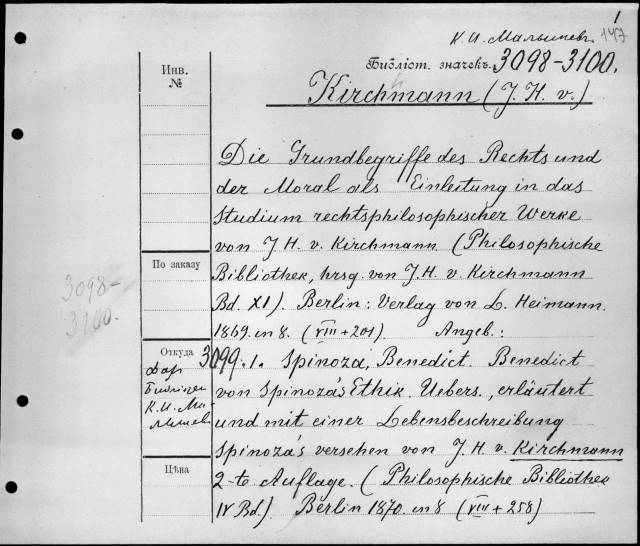 1
К. И. Малышев. 147
Библіот. значекъ. 3098-3100.
Инв.
№
Kirchmann (J. H. v.)
Die Grundbegriffe des Rechts und
der Moral als Einleitung in das
Studium rechtsphilosophischer Werke
von J H. v. Kirchmann (Philosophische
По заказу
Bibliothek, hrsg. von J. H. v. Kirchmann
3098-
3100.
Bd. XI). Berlin: Verlag von L. Heimann.
1869. in 8. (VIII + 201) Angeb.:
Откуда
3099. 1. Spinoza, Benedict. Benedict
Дар
Библіотеки
К. И. Ма-
лышева
von Spinoza's Ethik. Uebers., erläutert
und mit einer Lebensbeschreibung
Spinoza's versehen von J. H. v. Kirchmann
Цѣна
2-te Auflage. (Philosophische Bibliothek
IV Bd.) Berlin 1870. in 8 (VIII + 258)